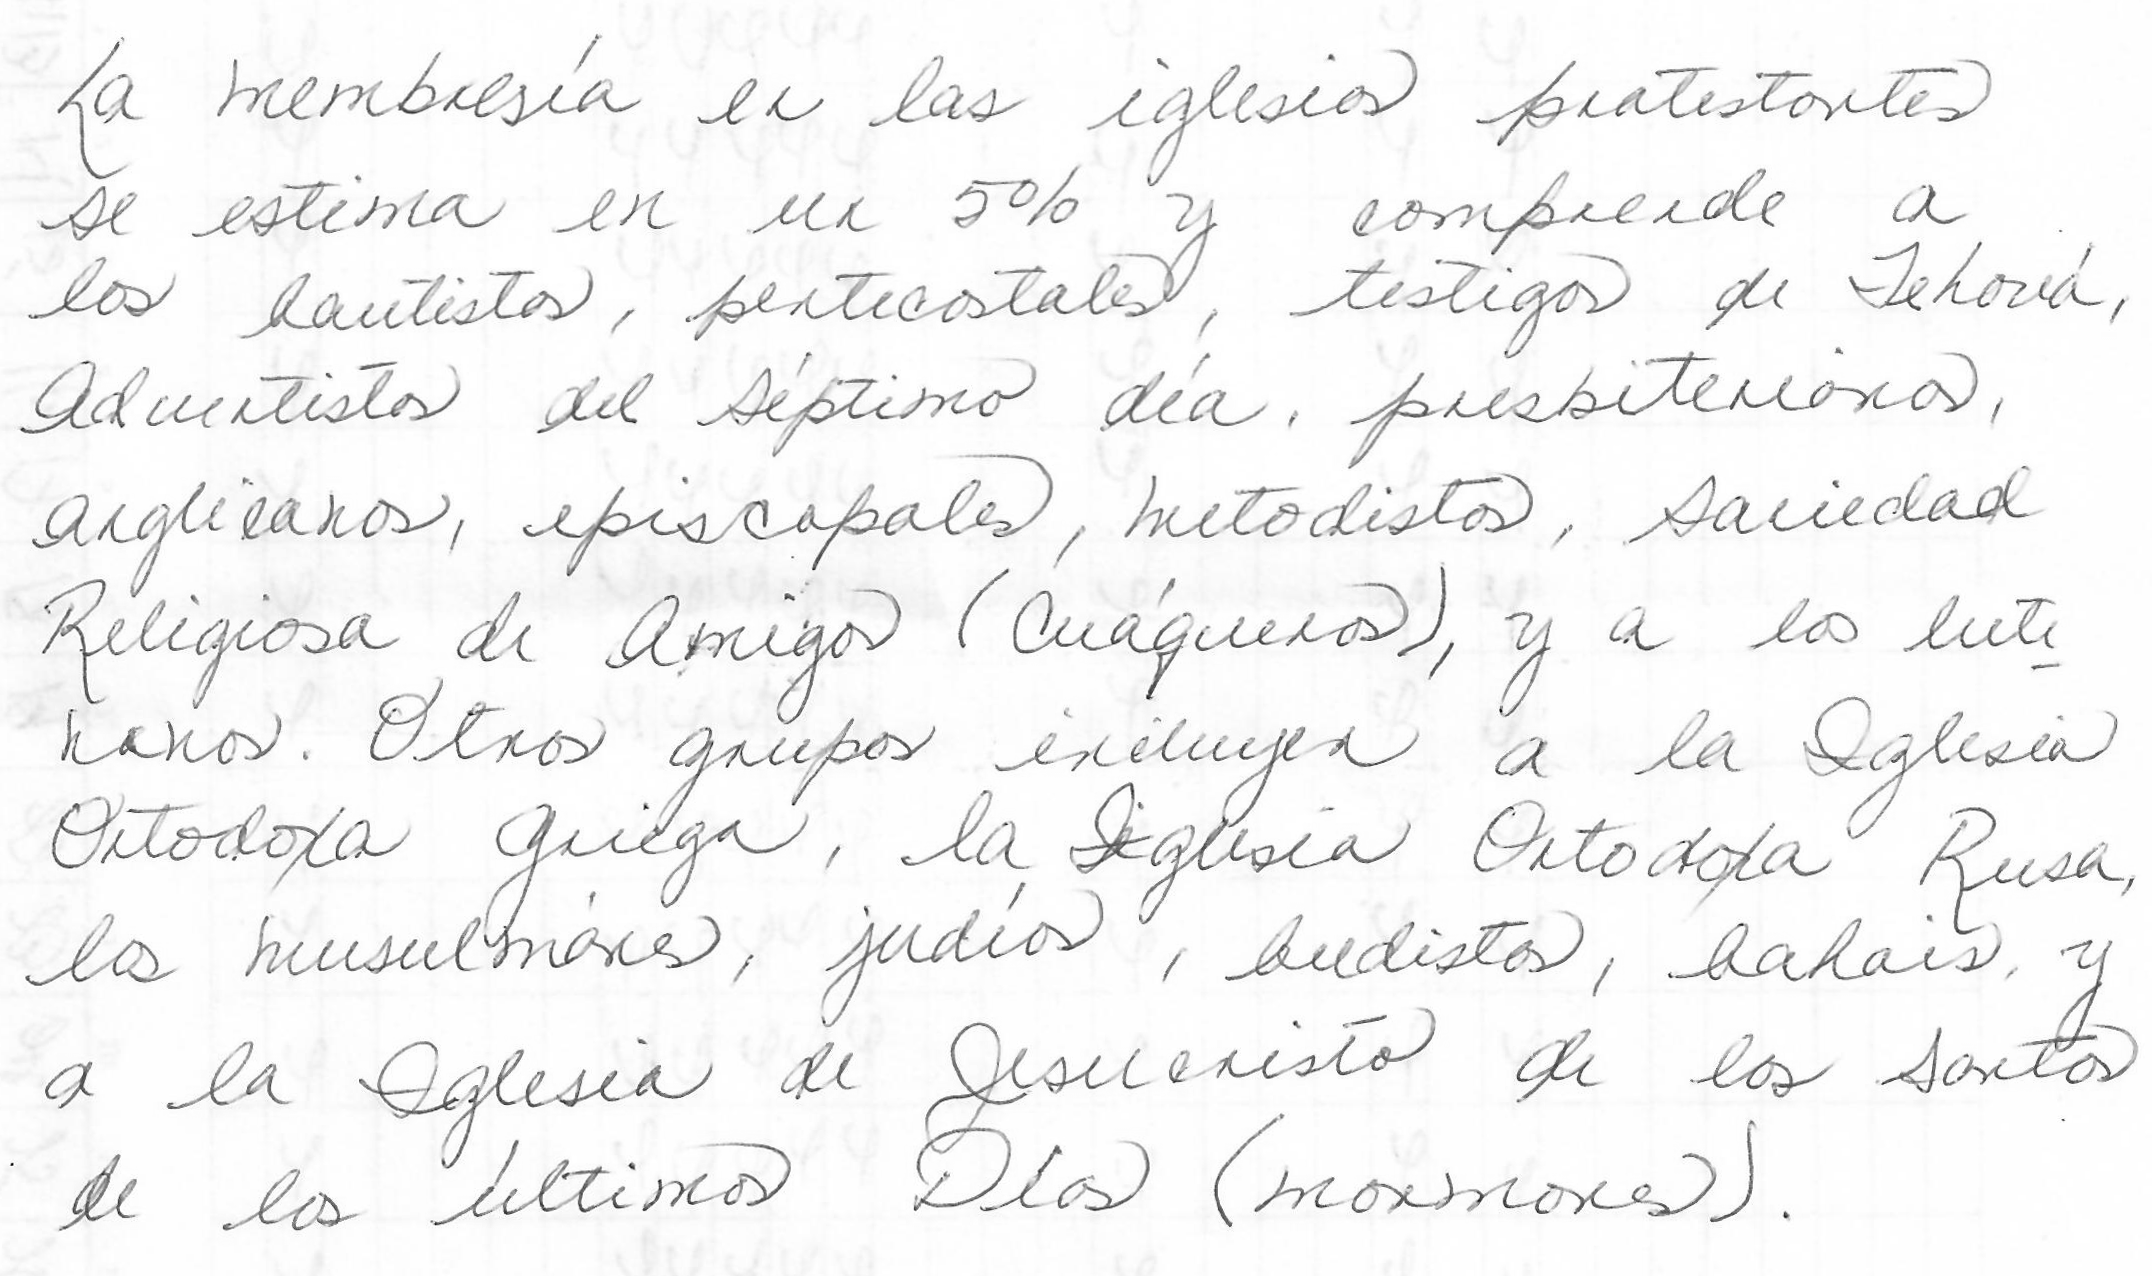 La membresía en las iglesias protestantes
se estima en un 5% y comprende a
los bautistas, pentecostales, testigos de Jehová,
Adventistas del séptimo día, presbiterianos,
anglicanos, episcopales, metodistas, Sociedad
Religiosa de Amigos (Cuáqueros), y a los lute
ranos. Otros grupos incluyen a la Iglesia
Ortodoxa Griega, la Iglesia Ortodoxa Rusa,
los musulmánes, judíos, budistas, bahais, y
a la Iglesia de Jesucristo de los Santos
de los últimos Días (mormones).